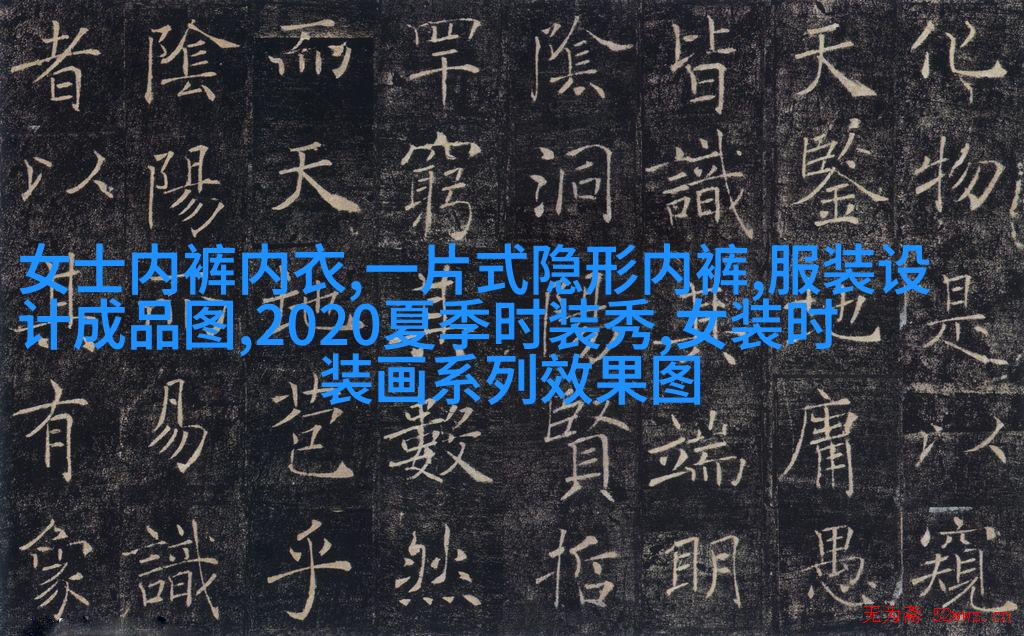 化物是以窺
天鑒地庸愚
皆識其端明
陰洞陽賢哲
罕窮其數然
而天地苞乎
陰陽而易識
者以其有象
女士内裤内衣,一片式隐形内裤,服装设
计成品图,2020夏季时装秀,女装时
装画系列效果图
无为斋 52wwz.cn